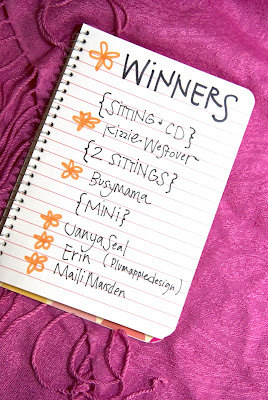 WiNNERS
{SITTING + CD}
Kizzie-Westover
{2 SITTINGS}
Busymama
{MiNi}
VanyaSeal
Erin (plumappledesign)
Maili Marsden